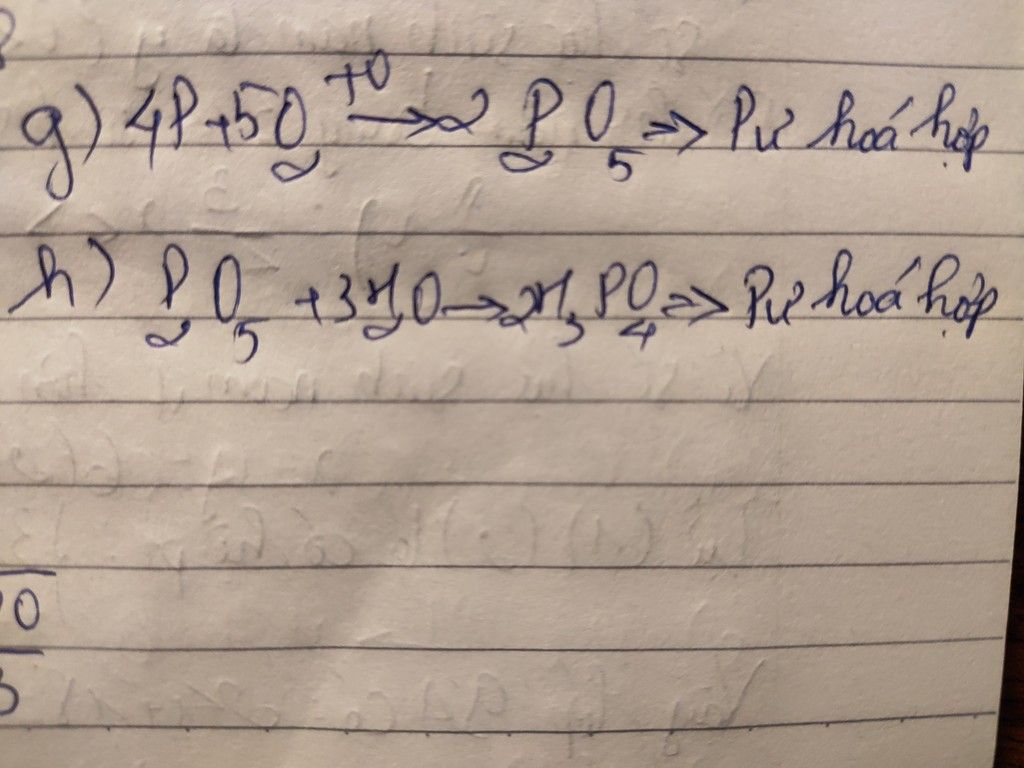 g) 4P+5O₂ →^{t0} 2P₂O₅ => Pư hoá hợp
h) P₂O₅ +3H₂O→2H₃PO₄=> Pư hoá hợp